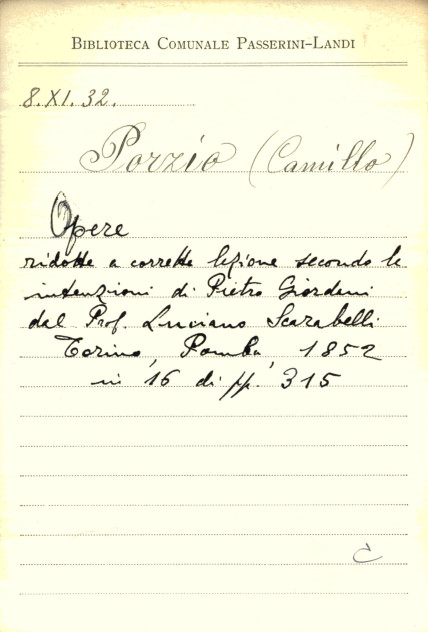 BIBLIOTECA COMUNALE PASSERINI-LANDI
8.XI.32.
Porzio (Camillo)
Opere
ridotte a corretta lezione secondo le
intenzioni di Pietro Giordani
dal Prof. Luciano Scarabelli
Torino, Pomba, 1852
in 16 di pp. 315
C